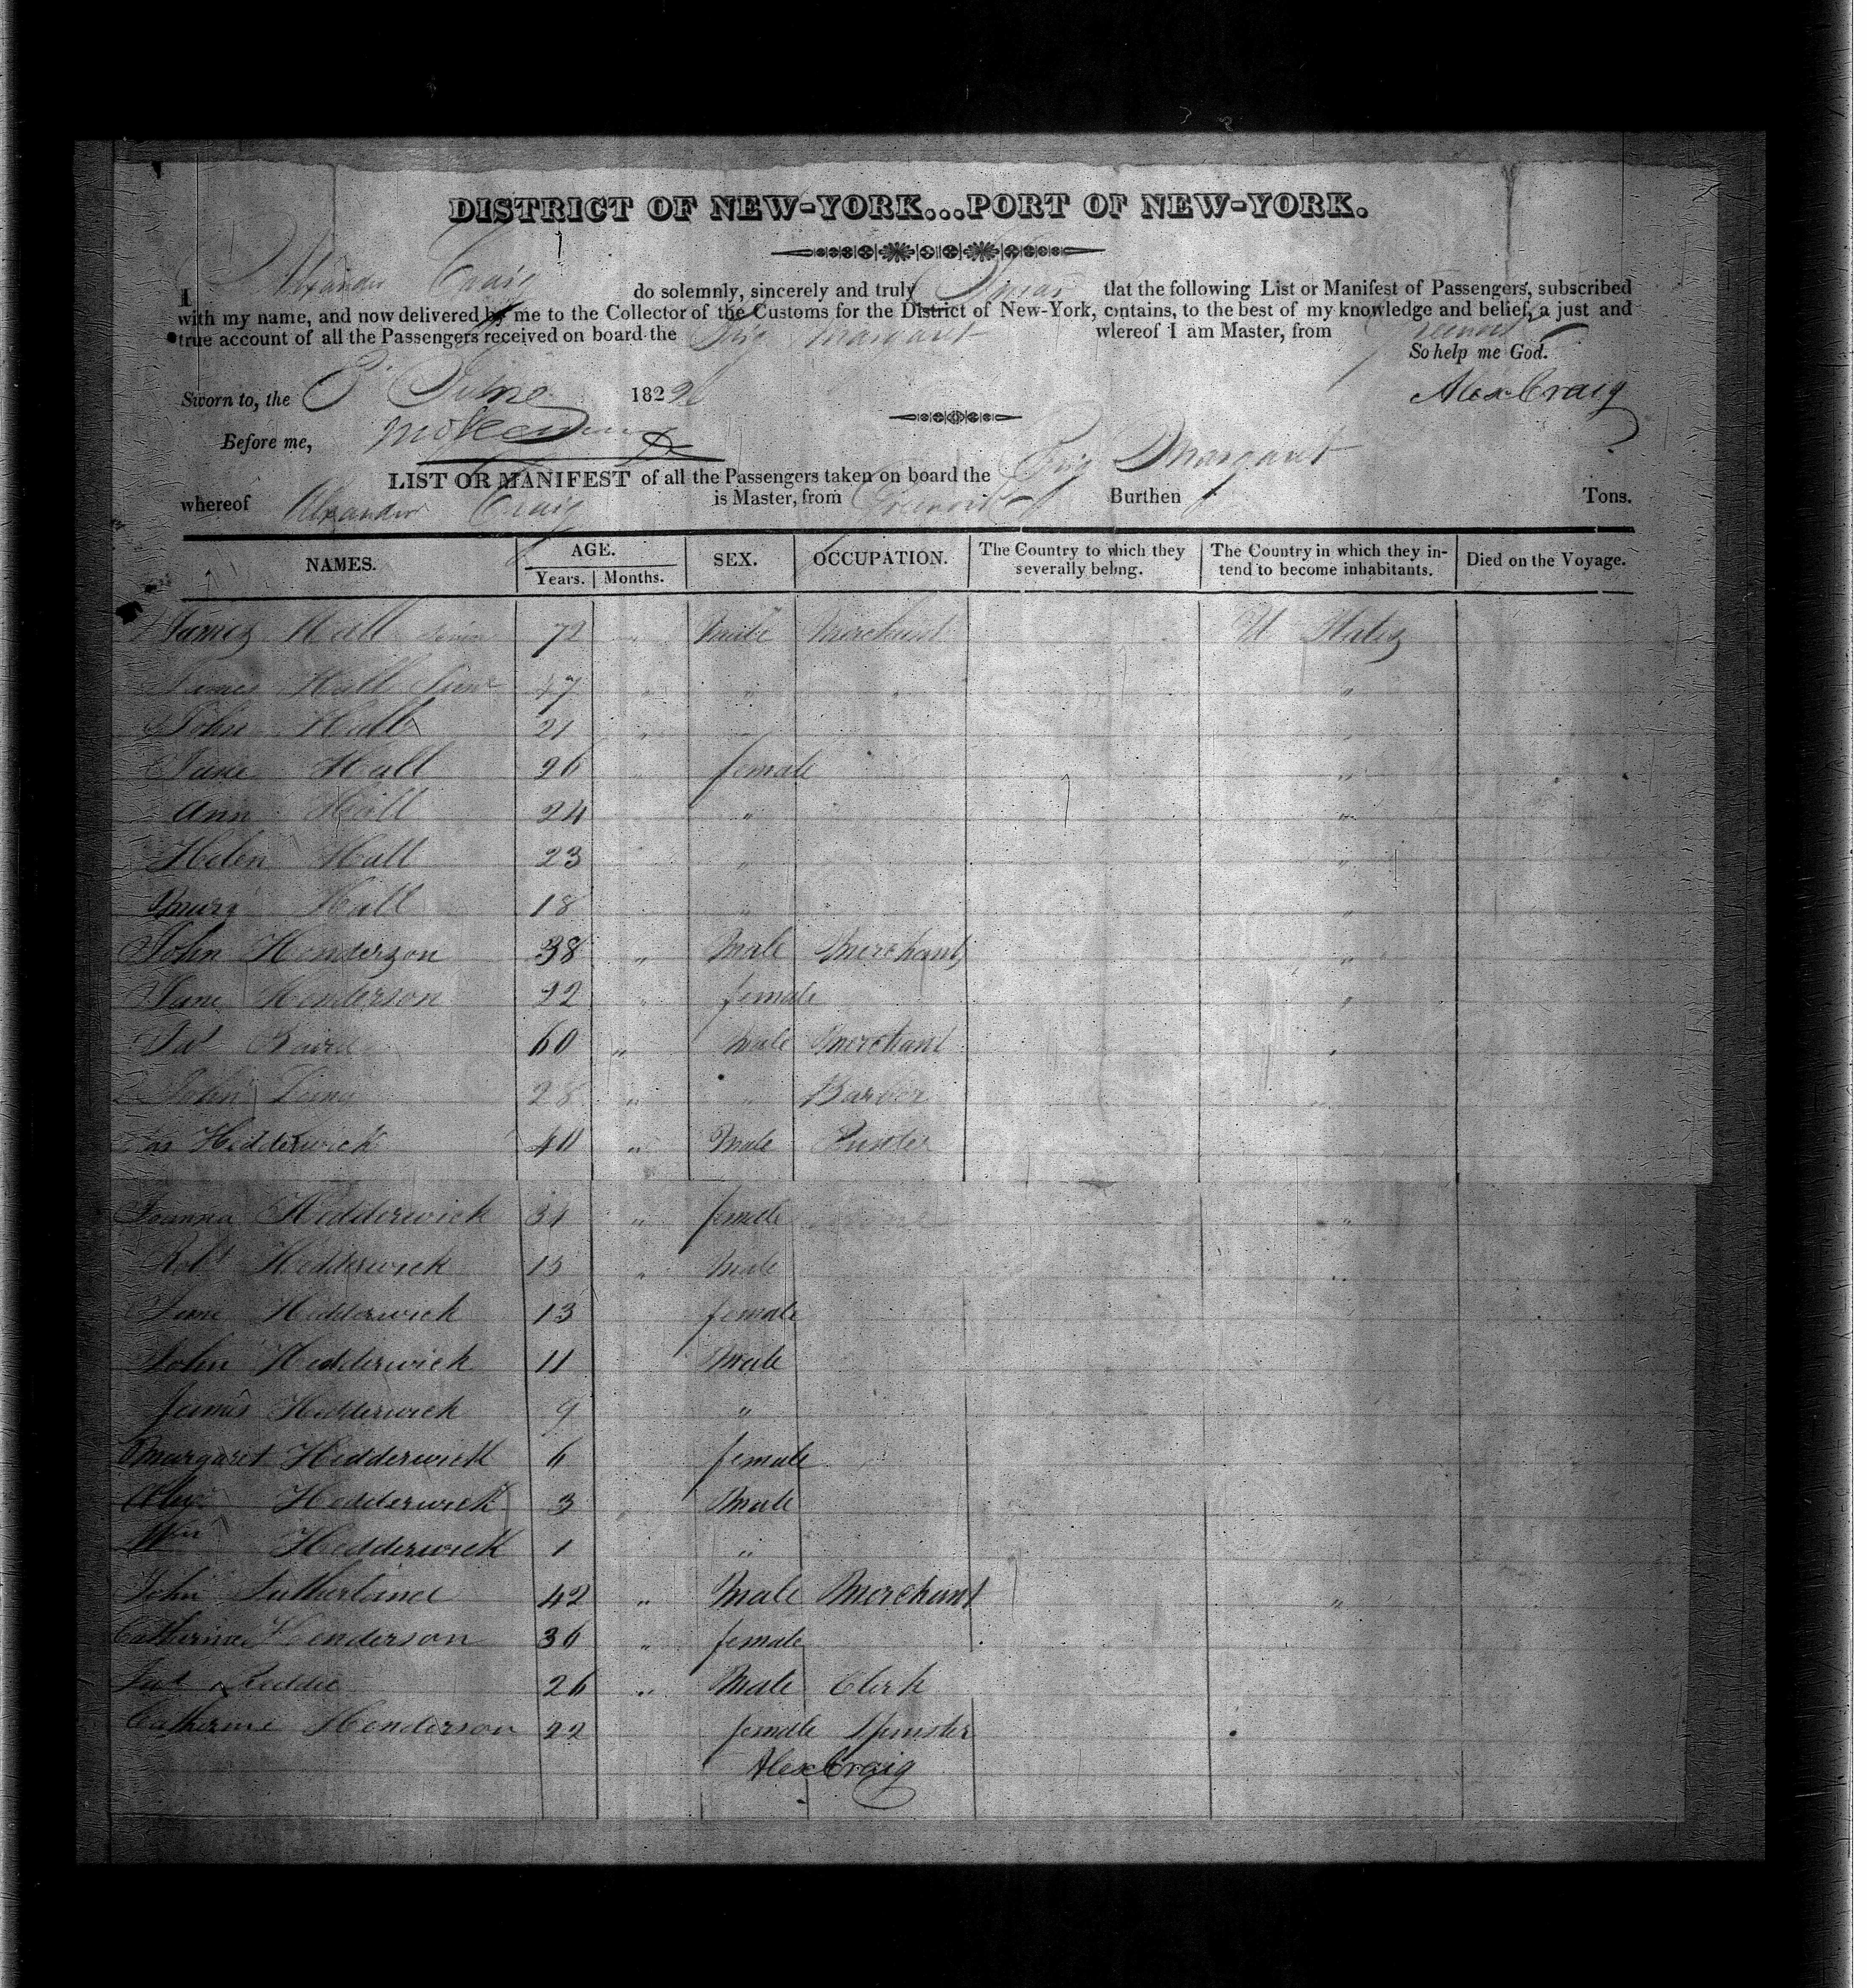 DISTRICT OF NEW-YORK...PORT OF NEW-YORK.
I Alexander Craig do solemnly, sincerely and truly Swear that the following List or Manifest of Passengers, subscribed
with my name, and now delivered by me to the Collector of the Customs for the District of New-York, contains, to the best of my knowledge and belief, a just and
true account of all the Passengers received on board the Brig Margaret whereof I am Master, from Greenock
So help me God.
Sworn to, the 3 June 182 Alex Craig
Before me,
LIST OR MANIFEST of all the Passengers taken on board the Brig Margaret
whereof Alexander Craig is Master, from Greenock Burthen Tons.
NAMES. AGE. SEX. OCCUPATION. The Country to which they severally belong. The Country in which they intend to become inhabitants. Died on the Voyage.
Years. Months.
James Hall Senior 72 " Male Merchant U States
James Hall Junr 47 " " " "
John Hall 21 " "
Jane Hall 26 " female "
Ann Hall 24 " "
Helen Hall 23 " "
Mary Hall 18 " "
John Henderson 38 " Male Merchant "
Jane Henderson 22 " female "
Baird 60 " Male Merchant "
John 28 " " Barber "
Jas Hedderwick 40 " Male
Joanna Hedderwick 31 " female "
Robt Hedderwick 15 " Male "
Jane Hedderwick 13 female "
John Hedderwick 11 Male
James Hedderwick 9 "
Margaret Hedderwick 6 female
Alexr Hedderwick 3 Male
Wm Hedderwick 1 "
John Sutherland 42 " Male Merchant "
Catherine Henderson 36 " female
Reddie 26 " Male Clerk
Catherine Henderson 22 female Spinster
Alex Craig